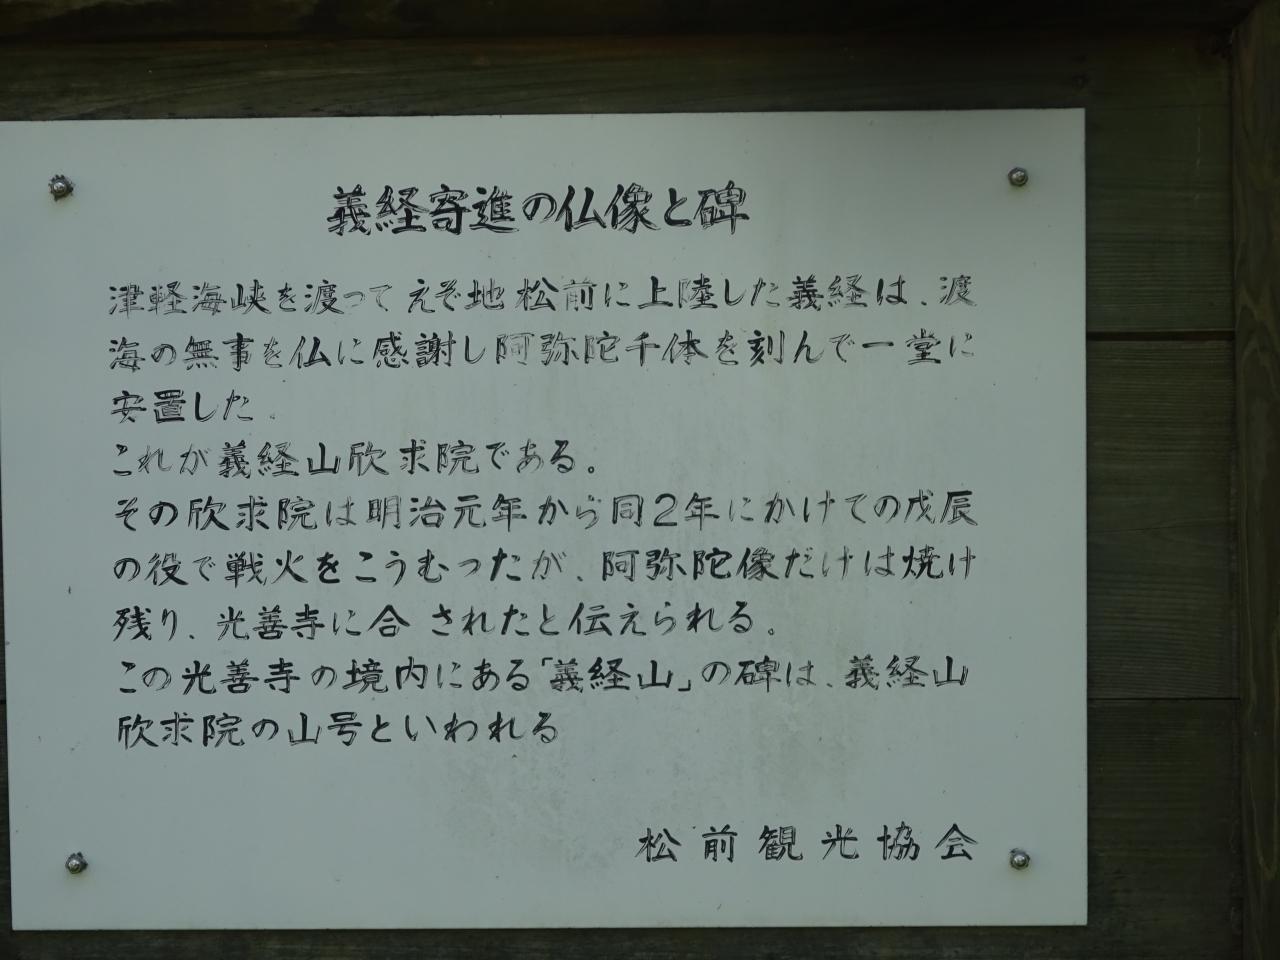 義経寄進の仏像と碑
津軽海峡を渡ってえぞ地松前に上陸した義経は、渡
海の無事を仏に感謝し阿弥陀千体を刻んで一堂に
安置した。
これが義経山欣求院である。
その欣求院は明治元年から同2年にかけての戊辰
の役で戦火をこうむったが、阿弥陀像だけは焼け
残り、光善寺に合 されたと伝えられる。
この光善寺の境内にある「義経山」の碑は、義経山
欣求院の山号といわれる
松前観光協会